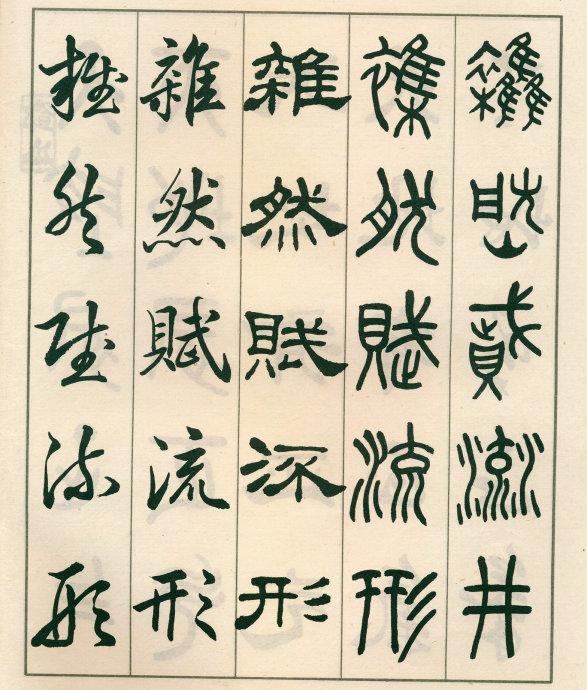 雜然賦流井
雜然賦流形
雜然賦流形
雜然賦流形
雜然賦流形